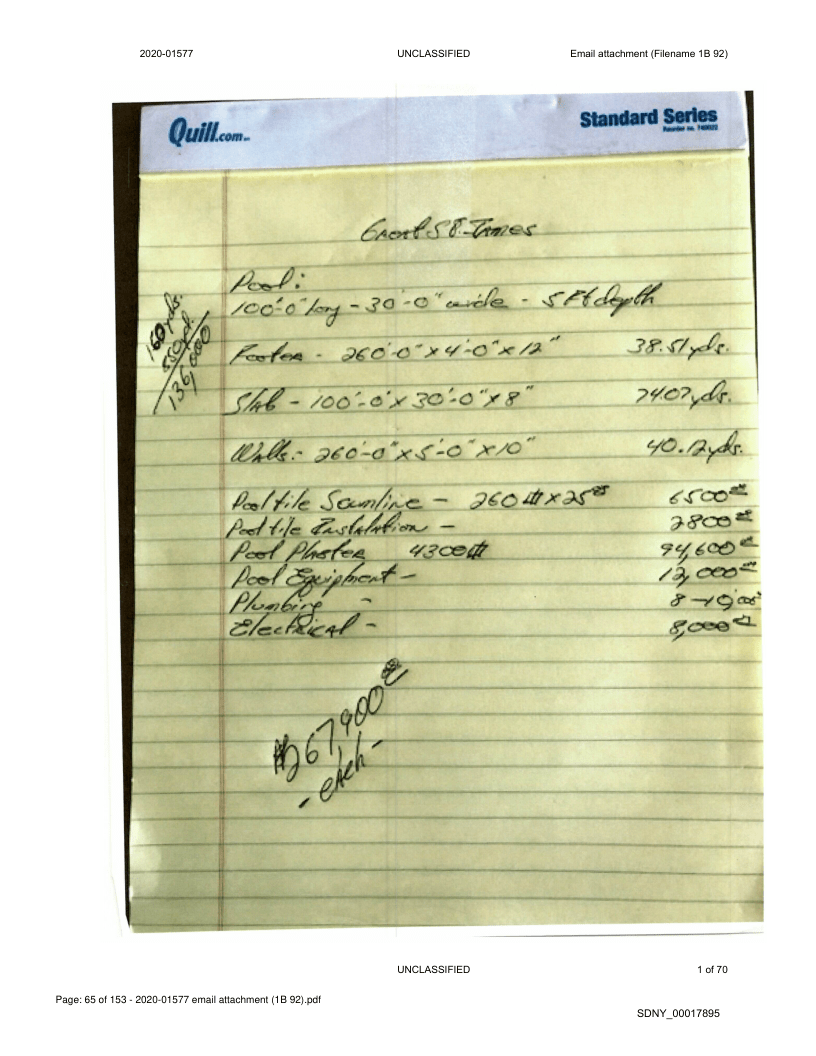 2020-01577 UNCLASSIFIED Email attachment (Filename 1B 92)
Quill.com
Standard Series
Reorder no. 740022
Great St. James
Pool:
100'-0" long - 30'-0" wide - 5 Ft depth
160 yds.
850 yd.
136,000
Footer - 260'-0" x 4'-0" x 12" 38.51 yds.
Slab - 100'-0" x 30'-0" x 8" 74.07 yds.
Walls:- 260'-0" x 5'-0" x 10" 40.12 yds.
Pool tile - 260 x 25 6500
Pool tile Installation - 2800
Pool Plaster 4300 94,600
Pool Equipment - 12,000
Plumbing - 8-10,00
Electrical - 8,000
#267900
- each -
UNCLASSIFIED 1 of 70
Page: 65 of 153 - 2020-01577 email attachment (1B 92).pdf
SDNY_00017895